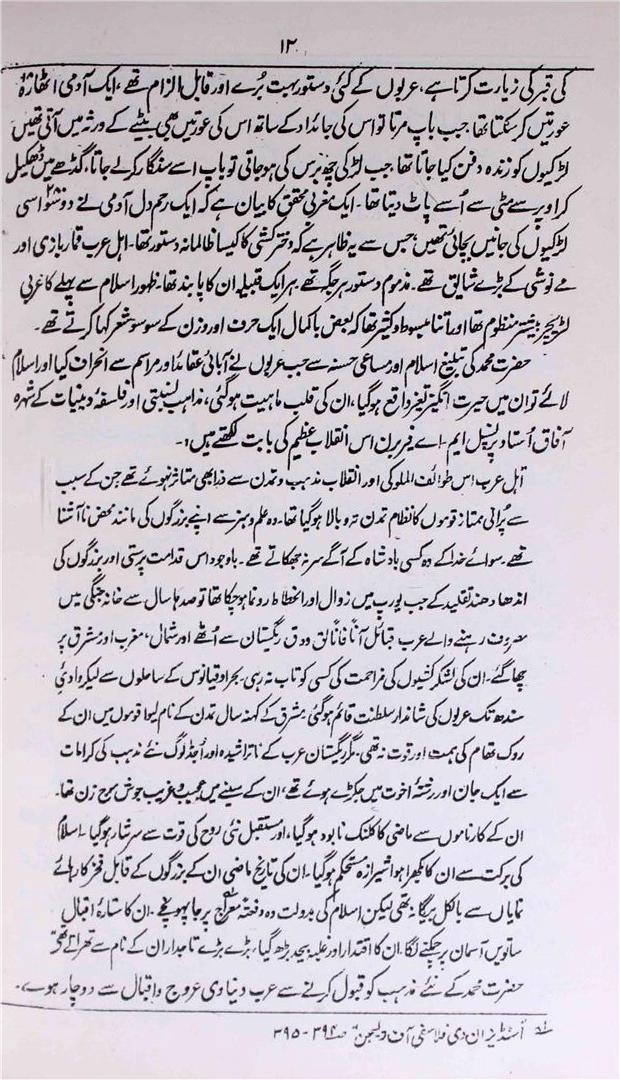 ۱۲
کی قبر کی زیارت کرتا ہے، عربوں کے کئی دستور بہت بُرے اور قابل الزام تھے، ایک آدمی اٹھارہ
عورتیں کر سکتا تھا، جب باپ مرتا تو اس کی جائداد کے ساتھ اس کی عورتیں بھی بیٹے کے ورثہ میں آتی تھیں
لڑکیوں کو زندہ دفن کیا جاتا تھا، جب لڑکی چھ برس کی ہو جاتی تو باپ اسے سنگار کر لے جاتا، گڈھے میں ڈھکیل
کر اوپر سے مٹی سے اُسے پاٹ دیتا تھا۔ ایک مغربی محقق کا بیان ہے کہ ایک رحم دل آدمی نے دو سو اسی
لڑکیوں کی جانیں بچائی تھیں، جس سے یہ ظاہر ہے کہ دختر کشی کا کیسا ظالمانہ دستور تھا۔ اہل عرب قمار بازی اور
مے نوشی کے بڑے شایق تھے۔ مذموم دستور ہر جگہ تھے ہر ایک قبیلہ ان کا پابند تھا۔ ظہور اسلام سے پہلے کا عربی
لٹریچر بیشتر منظوم تھا اور اتنا مبسوط و کثیر تھا کہ بعض باکمال ایک حرف اور وزن کے سو سو شعر کہا کرتے تھے۔
حضرت محمد کی تبلیغ اسلام اور مساعی حسنہ سے جب عربوں نے آبائی عقائد اور مراسم سے انحراف کیا اور اسلام
لائے تو ان میں حیرت انگیز تغیر واقع ہو گیا، ان کی قلب ماہیت ہو گئی، مذاہب نسبتی اور فلسفۂ دینیات کے شہرہ
آفاق اُستاد پرنسپل ایم۔ اے فیربرن اس انقلاب عظیم کی بابت لکھتے ہیں:۔
اہل عرب اس طوائف الملوکی اور انقلاب مذہب و تمدن سے ذرا بھی متاثر نہ ہوئے تھے جن کے سبب
سے پُرانی ممتاز قوموں کا نظام تمدن تہ و بالا ہو گیا تھا۔ وہ علم و ہنر سے اپنے بزرگوں کی مانند محض نا آشنا
تھے۔ سوائے خدا کے وہ کسی بادشاہ کے آگے سر نہ جھکاتے تھے۔ باوجود اس قدامت پرستی اور بزرگوں کی
اندھا دھند تقلید کے جب یورپ میں زوال اور انحطاط رونما ہو چکا تھا تو صدہا سال سے خانہ جنگی میں
مصروف رہنے والے عرب قبائل آناً فاناً لق و دق ریگستان سے اُٹھے اور شمال، مغرب اور مشرق پر
چھا گئے۔ ان کی لشکر کشیوں کی مزاحمت کی کسی کو تاب نہ رہی۔ بحر اوقیانوس کے ساحلوں سے لیکر وادیٔ
سندھ تک عربوں کی شاندار سلطنت قائم ہو گئی، مشرق کے کہنہ سال تمدن کے نام لیوا قوموں میں ان کے
روک تھام کی ہمت اور قوت نہ تھی۔ مگر ریگستان عرب کے ناتراشیدہ اور اُجڈ لوگ نئے مذہب کی کرامات
سے ایک جان اور رشتۂ اخوت میں جکڑے ہوئے تھے، ان کے سینے میں عجیب و غریب جوش موج زن تھا۔
ان کے کارناموں سے ماضی کا کلنک نابود ہو گیا، اور مستقبل نئی روح کی قوت سے سرشار ہو گیا۔ اسلام
کی برکت سے ان کا بکھرا ہوا شیرازہ مستحکم ہو گیا۔ ان کی تاریخ ماضی ان کے بزرگوں کے قابل فخر کارہائے
نمایاں سے بالکل بیگانہ تھی لیکن اسلام کی بدولت وہ دفعتہً معراج پر جا پہونچے۔ ان کا ستارۂ اقبال
ساتویں آسمان پر چمکنے لگا۔ ان کا اقتدار اور غلبہ بیحد بڑھ گیا، بڑے بڑے تاجدار ان کے نام سے تھراتے تھے"
حضرت محمد کے نئے مذہب کو قبول کرنے سے عرب دنیاوی عروج و اقبال سے دوچار ہوے،۔
اسٹڈیز ان دی فلاسفی آف ریلیجن" ص ۳۹۴-۳۹۵